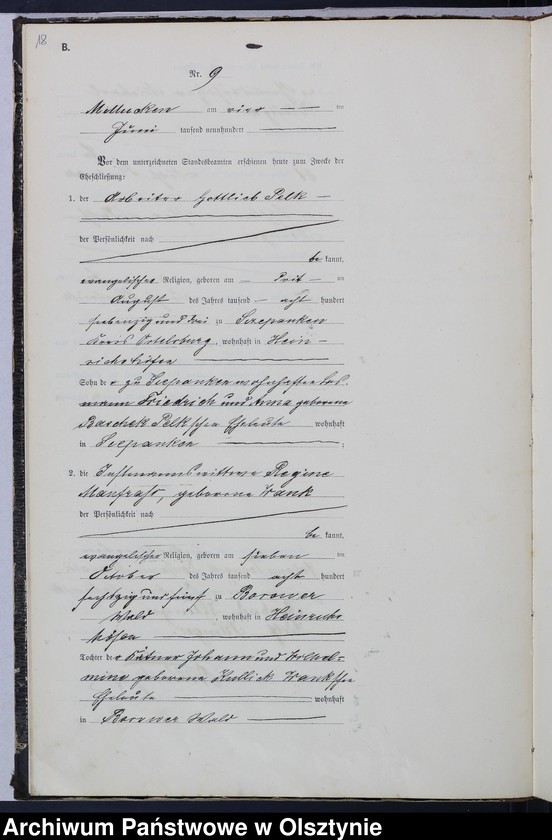 18
B.
Nr. 9
am vier ten
Juni tausend neunhundert
Vor dem unterzeichneten Standesbeamten erschienen heute zum Zwecke der
Eheschließung:
1. der Arbeiter Gottlieb Pelk
der Persönlichkeit nach
be kannt,
evangelischer Religion, geboren am ten
August des Jahres tausend acht hundert
siebenzig und drei zu
Kreis Ortelsburg, wohnhaft in Hein-
richshöfen
Sohn der zu wohnhaften Los-
mann Friedrich und Anna geborene
Pelk'schen Eheleute wohnhaft
in ;
2. die Instmannswittwe Regine
geborene Wank
der Persönlichkeit nach
be kannt,
evangelischer Religion, geboren am sieben ten
October des Jahres tausend acht hundert
sechszig und fünf zu Borower
Wald, wohnhaft in Heinrichs-
höfen
Tochter der Kätner Johann und Wilhel-
mine geborene Kullick Wank'schen
Eheleute wohnhaft
in Borower Wald
Archiwum Państwowe w Olsztynie